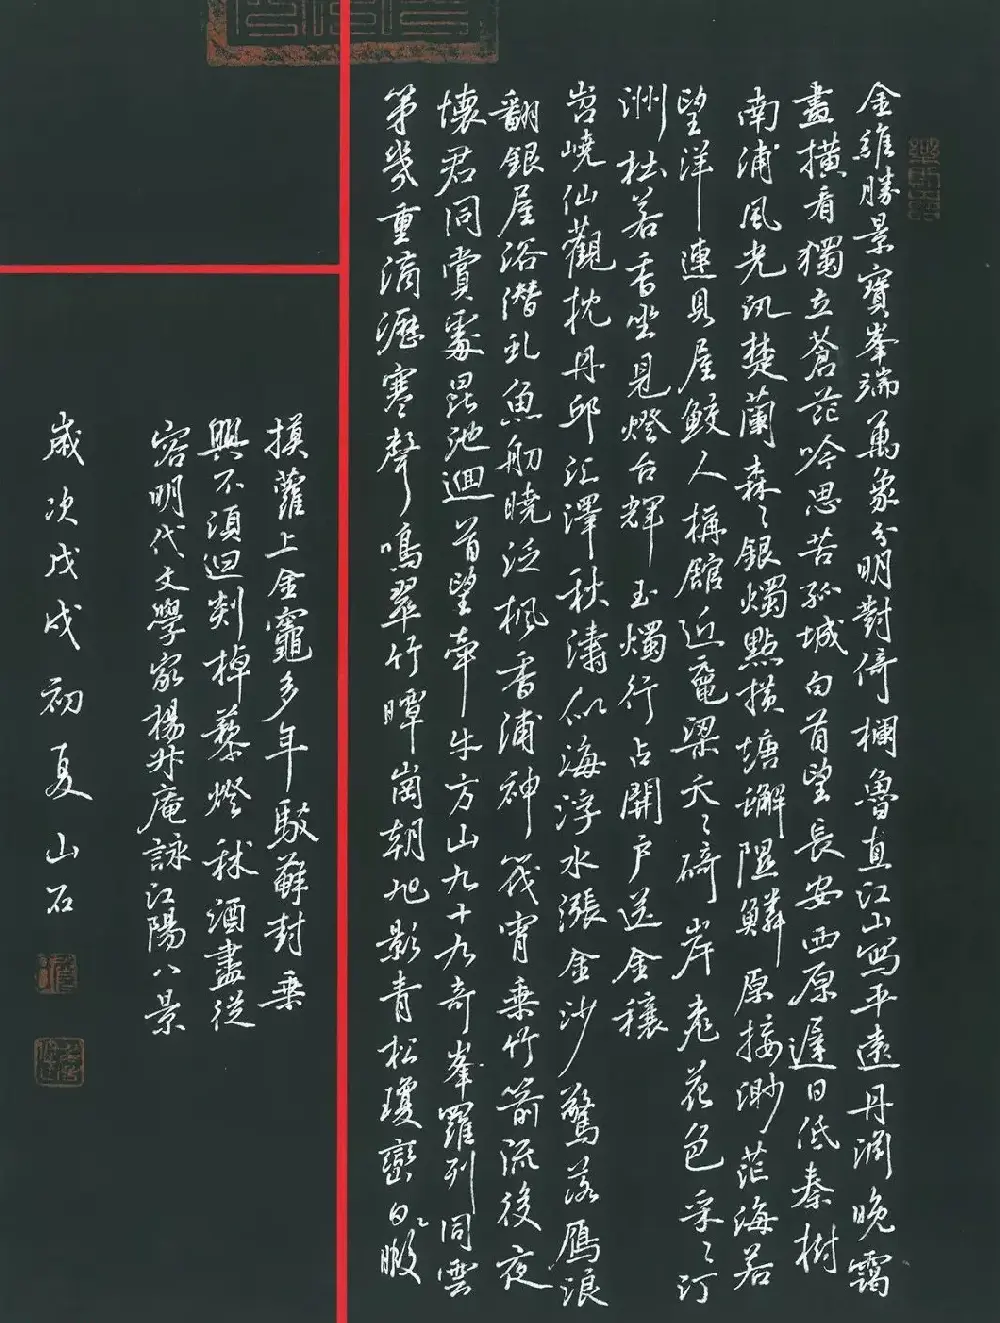 金維勝景寶峯端萬象分明對倚欄魯直江山寫平遠丹淵晚靄
畫橫看獨立蒼茫吟思苦孤城白首望長安西原遲日低秦樹
南浦風光汎楚蘭森〻銀燭點橫塘獬隰鱗原接渺茫海若
望洋連貝屋鮫人構館近黿梁夭〻碕岸花色采〻汀
洲杜若香坐見燈台輝玉燭行占開戶送金穰
岧嶢仙觀枕丹邱汇澤秋濤似海浮水漲金沙驚落鴈浪
翻銀屋浴潛虬魚舠曉泛楓香浦神筏宵乘竹箭流後夜
懷君同賞處昆池迴首望牽牛方山九十九奇峯羅列同雲
第幾重滴瀝寒聲鳴翠竹曈曨朝旭影青松瓊巒白〻暇
摸蘿上金竈多年駁蘚封乘
興不須迴剡棹藜燈秫酒盡從
容明代文學家楊升庵詠江陽八景
歲次戊戌初夏山石